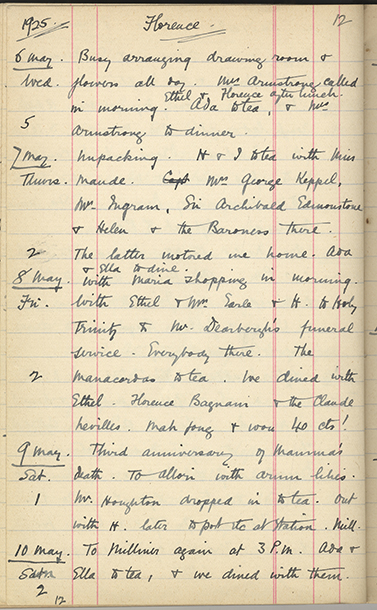 1925 Florence 12
6 May. Busy arranging drawing room &
Wed. flowers all day. Mrs Armstrong called
Ethel & Florence after lunch.
in morning. Ada to tea, & Mrs
5 Armstrong to dinner.
7 May. Unpacking. H & I to tea with Miss
Thurs. Maude. Capt Mrs George Keppel,
Mrs Ingram, Sir Archibald Edmonstone
& Helen & the Baroness there.
2 The latter motored me home. Ada
& Ella to dine.
8 May. With Maria shopping in morning.
Fri. With Ethel & Mrs Earle & H. to Holy
Trinity to Mr. Dearbergh's funeral
service. Everybody there. The
2 Manacordas to tea. We dined with
Ethel. Florence Bagnani & the Claude
Nevilles. Mah Jong & won 40 cts!
9 May. Third anniversary of Mamma's
Sat. death. To Allori with arum lilies.
1 Mr. Houghton dropped in to tea. Out
with H. later to post &c at Station. Mill.
10 May. To Milliner again at 3 P.M. Ada &
Ella to tea, & we dined with them.
2
12